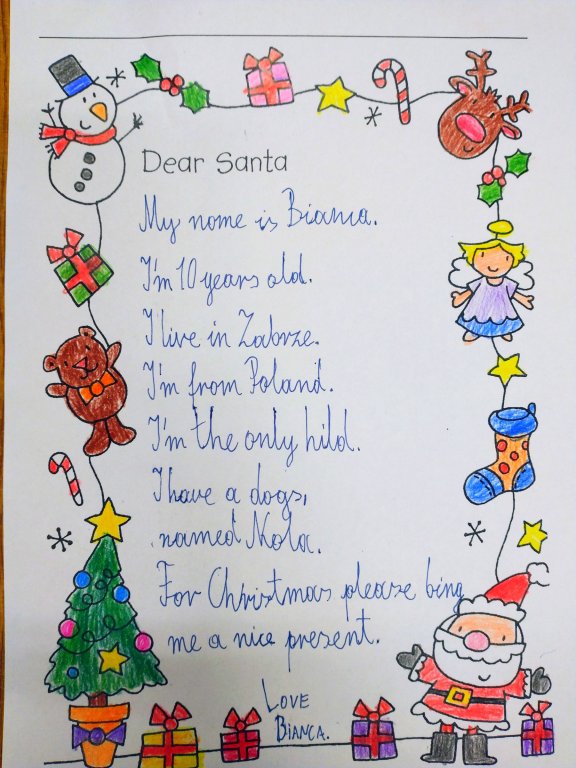 Dear Santa
My name is Bianca.
I'm 10 years old.
I live in Zabrze.
I'm from Poland.
I'm the only hild.
I have a dogs,
named Nola.
For Christmas please bing
me a nice present.
LOVE
BIANCA.